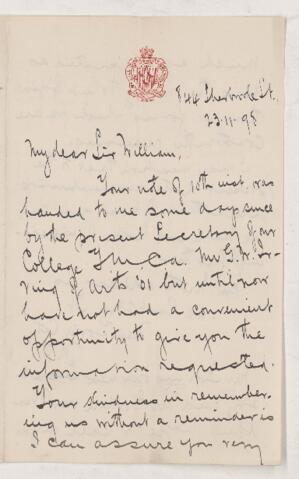 844 Sherbrooke St.,
23-11-98
My dear Sir William,
Your note of 10th inst. was
handed to me some days since
by the present Secretary of our
College Y M C a Mr G. W. Ir-
ving of Arts '01 but until now
have not had a convenient
opportunity to give you the
information requested.
Your kindness in remember-
ing us without a reminder is
I can assure you very